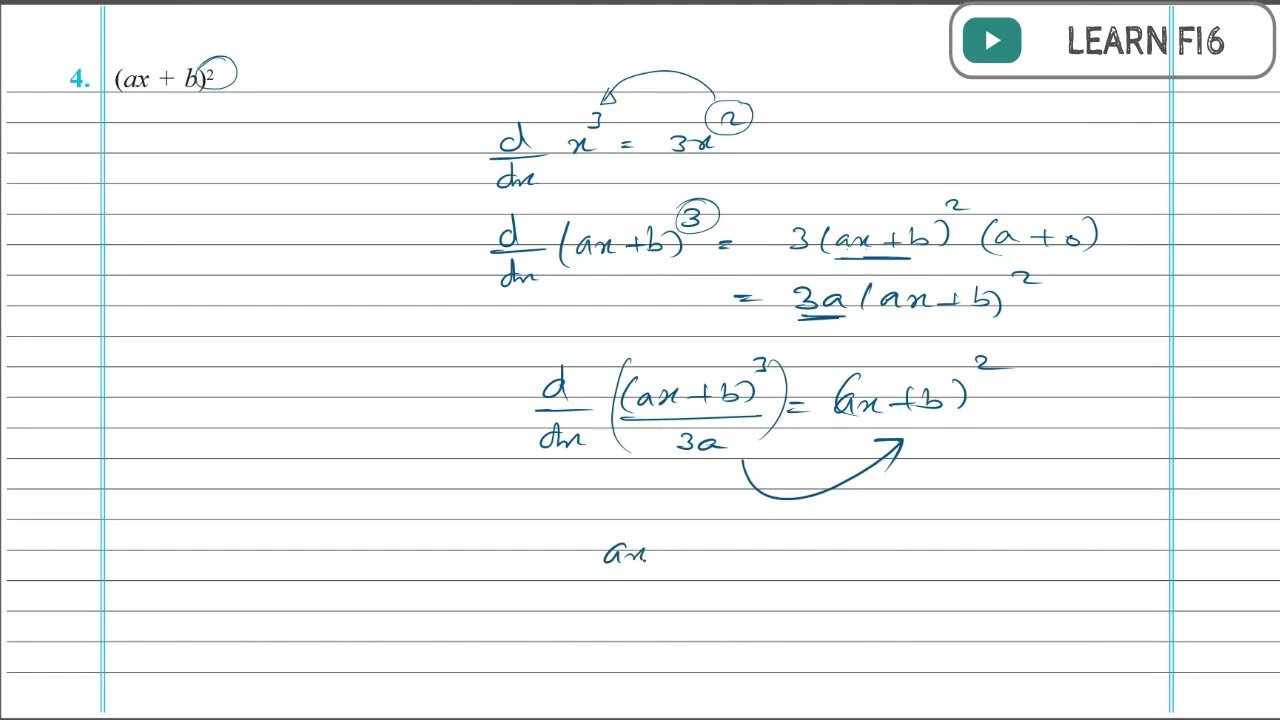 LEARN FI6
4. (ax + b)²
d/dx x³ = 3x²
d/dx (ax+b)³ = 3(ax+b)² (a+0)
= 3a(ax+b)²
d/dx ((ax+b)³/3a) = (ax+b)²
ax